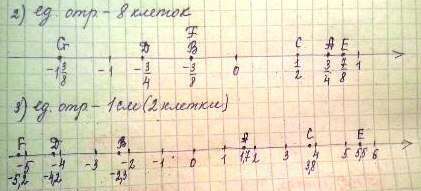 2) ед. отр – 8 клеток
F
G D B C A E
-1 3/8 -1 -3/4 -3/8 0 1/2 3/4 7/8 1
3) ед. отр – 1 см (2 клетки)
F D B A C E
-5 -4 -3 -2 -1 0 1 1,7 2 3 4 5 5,5 6
-5,2 -4,2 -2,3 3,8